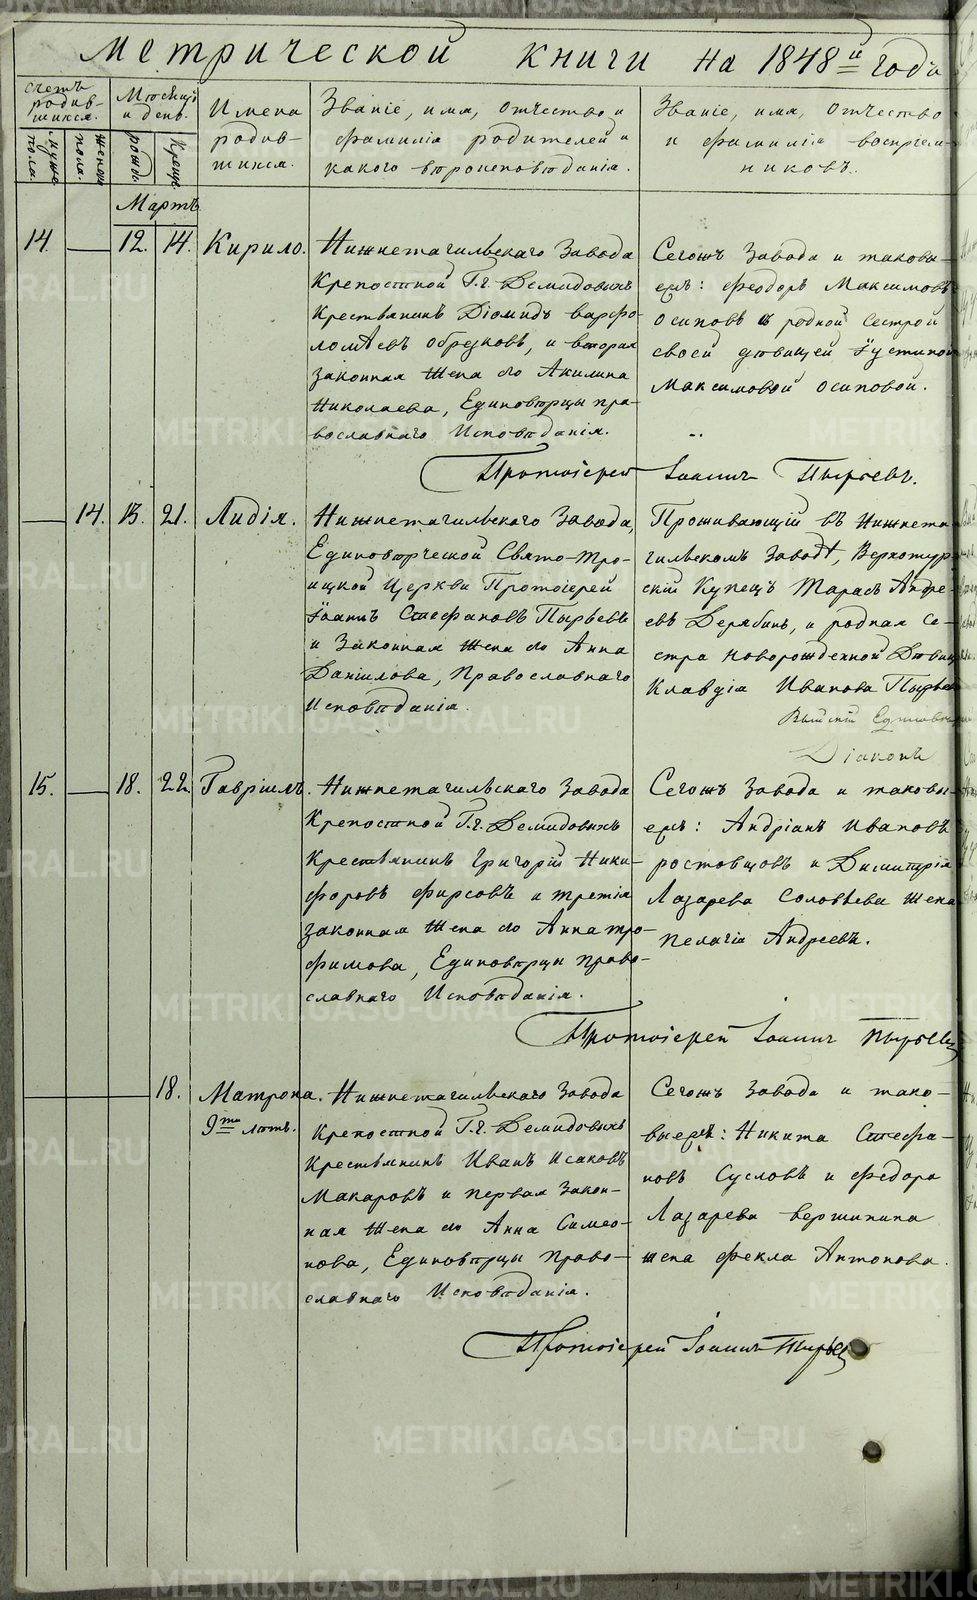 Метрической книги на 1848й годъ
Счетъ родив-
шихся.
Мужес. пола.
Женск. пола.
Мѣсяцъ и день.
рожд.
Крещ.
Имена
родив-
шихся.
Званіе, имя, отчество и
фамилія родителей и
какого вѣроисповѣданія.
Званіе, имя, отчество
и фамилія воспріем-
никовъ.
Мартъ
14 12. 14. Кирило.
Нижнетагильскаго Завода
Крепостной Г.г. Демидовыхъ
Крестьянинъ Діомидъ варфо-
ломѣевъ обрезковъ, и вторая
законная жена его Акилина
Николаева, Единовѣрцы пра-
вославнаго Исповѣданія.
Сегожъ Завода и таковы-
ежъ: Феодоръ Максимовъ
осиповъ съ родной сестрой
своей девицей Іустиной
Максимовой осиповой.
Протоіерей Іоаннъ Пырьевъ.
14. 13. 21. Лидія.
Нижнетагильскаго Завода,
Единовѣрческой Свято-Тро-
ицкой Церкви Протоіерей
Іоаннъ Стефановъ Пырьевъ
и Законная жена его Анна
Даніилова, Православнаго
Исповѣданія.
Проживающій въ Нижнета-
гильскомъ Заводѣ, Верхотур-
скій Купецъ Тарасъ Андре-
евъ Дерябинъ, и родная се-
стра новорожденной Девица
Клавдія Иванова Пырьева
Выйскій Единовер
Діаконъ
15. 18. 22. Гавріилъ.
Нижнетагильскаго Завода
Крепостной Г.г. Демидовыхъ
Крестьянинъ Григорій Ники-
форовъ Фирсовъ и третія
законная жена его Анна тро-
фимова, Единовѣрцы право-
славнаго Исповѣданія.
Сегожъ Завода и таковы-
ежъ: Андріанъ Ивановъ
ростовцовъ и Димитрія
Лазарева Соловьева жена
пелагія Андреевъ.
Протоіерей Іоаннъ Пырьевъ
18. Матрона.
9ти лѣтъ.
Нижнетагильскаго Завода
Крепостной Г.г. Демидовыхъ
Крестьянинъ Иванъ Исаковъ
Макаровъ и первая Закон-
ная жена его Анна Симео-
нова, Единовѣрцы право-
славнаго Исповѣданія.
Сегожъ Завода и тако-
выежъ: Никита Стефа-
новъ Сусловъ и Федора
Лазарева вершинина
жена Фекла Антонова.
Протоіерей Іоаннъ Пырьевъ
METRIKI.GASO-URAL.RU